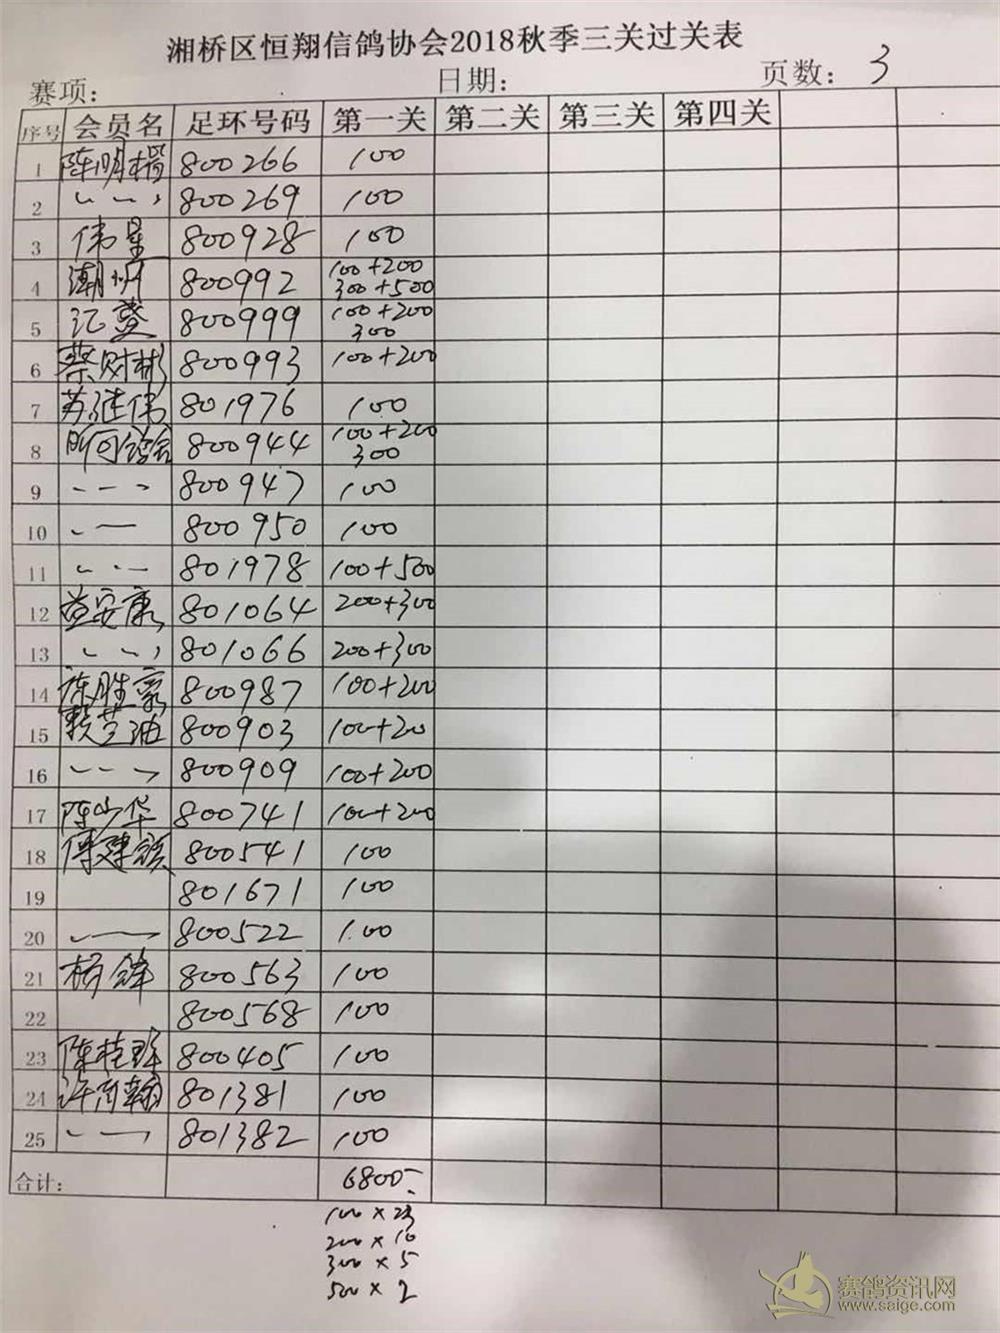 湘桥区恒翔信鸽协会2018秋季三关过关表
赛项: 日期: 页数: 3
序号 会员名 足环号码 第一关 第二关 第三关 第四关
1 陈明楷 800266 100
2 〃 800269 100
3 伟星 800928 100
4 潮州 800992 100+200 300+500
5 汇营 800999 100+200 300
6 蔡财彬 800993 100+200
7 苏继伟 801976 100
8 800944 100+200 300
9 --- 800947 100
10 -- 800950 100
11 --- 801978 100+500
12 益安康 801064 200+300
13 --- 801066 200+300
14 陈胜豪 800987 100+200
15 800903 100+20
16 --- 800909 100+200
17 陈少华 800741 100+200
18 800541 100
19 801671 100
20 -- 800522 100
21 杨锋 800563 100
22 800568 100
23 陈桂 800405 100
24 许 801381 100
25 -- 801382 100
合计: 6800-
100×23
200×10
300×5
500×2
赛鸽资讯网
www.saige.com